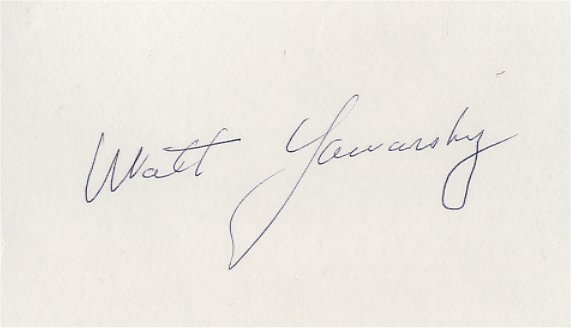 Walt Yawarsky